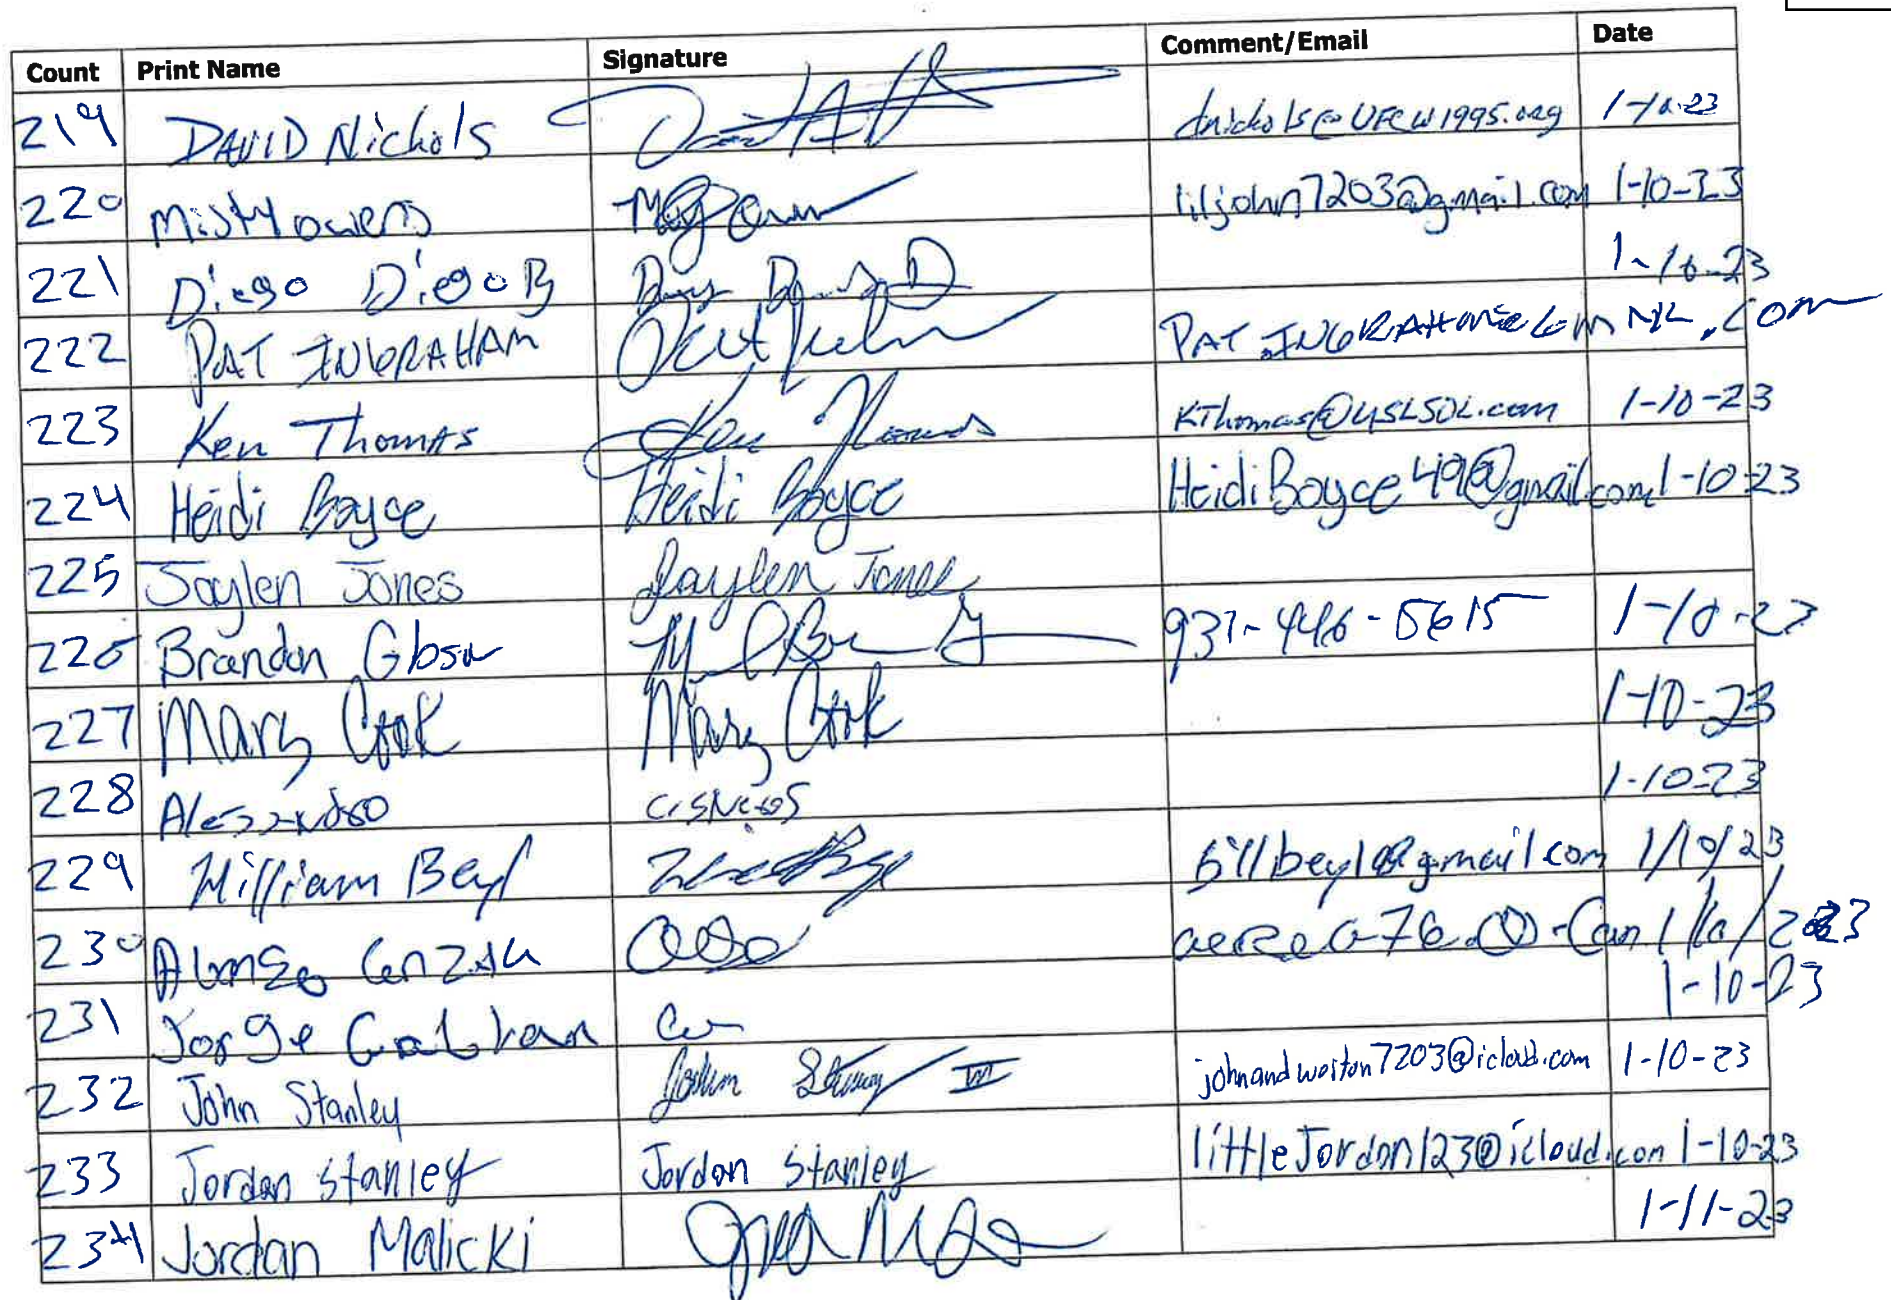 Count Print Name Signature Comment/Email Date
219 DAVID Nichols dnichols@UFCW1995.org 1-10-23
220 Misty owens liljohn7203@gmail.com 1-10-23
221 Diego Diego B 1-10-23
222 PAT INGRAHAM PAT.INGRAHAM
223 Ken Thomas Ken Thomas 1-10-23
224 Heidi Boyce Heidi Boyce HeidiBoyce49@gmail.com 1-10-23
225 Jaylen Jones Jaylen Jones
226 Brandon Gbson 937-446-5615 1-10-23
227 Mary Cook Mary Cook 1-10-23
228 1-10-23
229 William Beyl 1/10/23
230
231 Jorge 1-10-23
232 John Stanley John Stanley III johnandweston7203@icloud.com 1-10-23
233 Jordan Stanley Jordan Stanley littleJordan123@icloud.com 1-10-23
234 Jordan Malicki 1-11-23